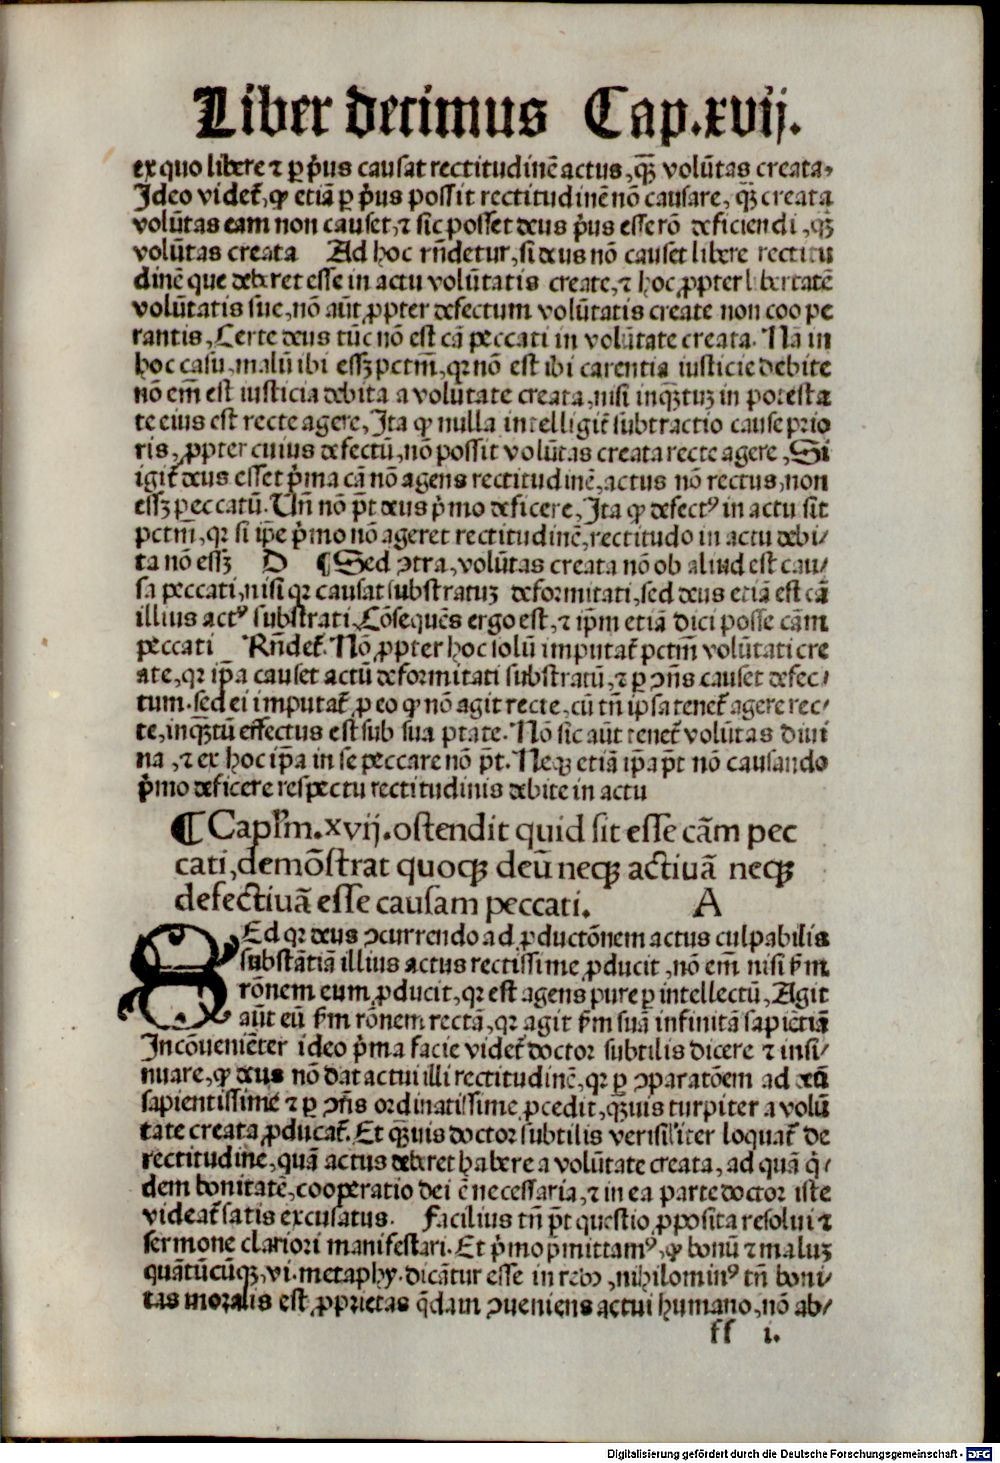 Liber decimus Cap.xvij.
ex quo libere ⁊ ꝑ pͥus causat rectitudinē actus, qꝫ̄ volūtas creata.
Ideo videt᷑, ꝙ etiā ꝑ pͥus possit rectitudinē nō causare, qꝫ̄ creata
volūtas eam non causet, ⁊ sic posset deus pͥus esse rō deficiendi, qꝫ̄
volūtas creata Ad hoc rn̄detur, si deus nō causet libere rectitu
dinē que deberet esse in actu volūtatis create, ⁊ hoc ꝓpter libertatē
volūtatis sue, nō aūt ꝓpter defectum volūtatis create non coope
rantis, Certe deus tūc nō est cā peccati in volūtate creata. Nā in
hoc casu, malū ibi essꝫ pctm̄, qꝛ nō est ibi carentia iusticie debite
nō em̄ est iusticia debita a volūtate creata, nisi inqꝫ̄tuꝫ in potesta
te eius est recte agere, Ita ꝙ nulla intelligit᷑ subtractio cause prio
ris, ꝓpter cuius defectū, nō possit volūtas creata recte agere, Si
igit᷑ deus esset pͥma cā nō agens rectitudinē, actus nō rectus, non
essꝫ peccatū. Vn̄ nō pt̄ deus pͥmo deficere, Ita ꝙ defectꝰ in actu sit
pctm̄, qꝛ si ip̄e pͥmo nō ageret rectitudinē, rectitudo in actu debi/
ta nō essꝫ D ¶ Sed ↄtra, volūtas creata nō ob aliud est cau/
sa peccati, nisi qꝛ causat substratuꝫ deformitati, sed deus etiā est cā
illius actꝰ substrati, Cōsequēs ergo est, ⁊ ip̄m etiā dici posse cām
peccati Rn̄det᷑. Nō ꝓpter hoc solū imputat᷑ pctm̄ volūtati cre
ate, qꝛ ip̄a causet actū deformitati substratū, ⁊ ꝑ ↄn̄s causet defec/
tum. sed ei imputat᷑, ꝓ eo ꝙ nō agit recte, cū tn̄ ipsa tenet᷑ agere rec/
te, inqꝫ̄tū effectus est sub sua ptāte. Nō sic aūt tenet᷑ volūtas diui
na, ⁊ ex hoc ip̄a in se peccare nō pt̄. Neqꝫ etiā ip̄a pt̄ nō causando
pͥmo deficere respectu rectitudinis debite in actu
¶ Capl̄m.xvij.ostendit quid sit esse cām pec
cati, demōstrat quoqꝫ deū neqꝫ actiuā neqꝫ
defectiuā esse causam peccati. A
SEd qꝛ deus ↄcurrendo ad ꝓductōnem actus culpabilis
substātiā illius actus rectissime ꝓducit, nō em̄ nisi ẜm
rōnem eum ꝓducit, qꝛ est agens pure ꝑ intellectū, Agit
aūt eū ẜm rōnem rectā, qꝛ agit ẜm suā infinitā sapiētiā
Incōueniēter ideo pͥma facie videt᷑ doctor subtilis dicere ⁊ insi/
nuare, ꝙ deus nō dat actui illi rectitudinē, qꝛ ꝑ ↄparatōem ad deū
sapientissime ⁊ ꝑ ↄn̄s ordinatissime ꝓcedit, qꝫ̄uis turpiter a volū
tate creata ꝓducat᷑. Et qꝫ̄uis doctor subtilis verisiliter loquat᷑ de
rectitudine, quā actus deberet habere a volūtate creata, ad quā qͥ/
dem bonitatē, cooperatio dei ē necessaria, ⁊ in ea parte doctor iste
videat᷑ satis excusatus. Facilius tn̄ pt̄ questio ꝓposita resolui ⁊
sermone clariori manifestari. Et pͥmo pͥmittamꝰ, ꝙ bonū ⁊ maluꝫ
quātūcūqꝫ, vi. metaphy. dicātur esse in rebꝰ, nihilominꝰ tn̄ boni/
tas moralis est ꝓprietas qͣdam ↄueniens actui humano, nō ab/
ff i.
Digitalisierung gefördert durch die Deutsche Forschungsgemeinschaft - DFG